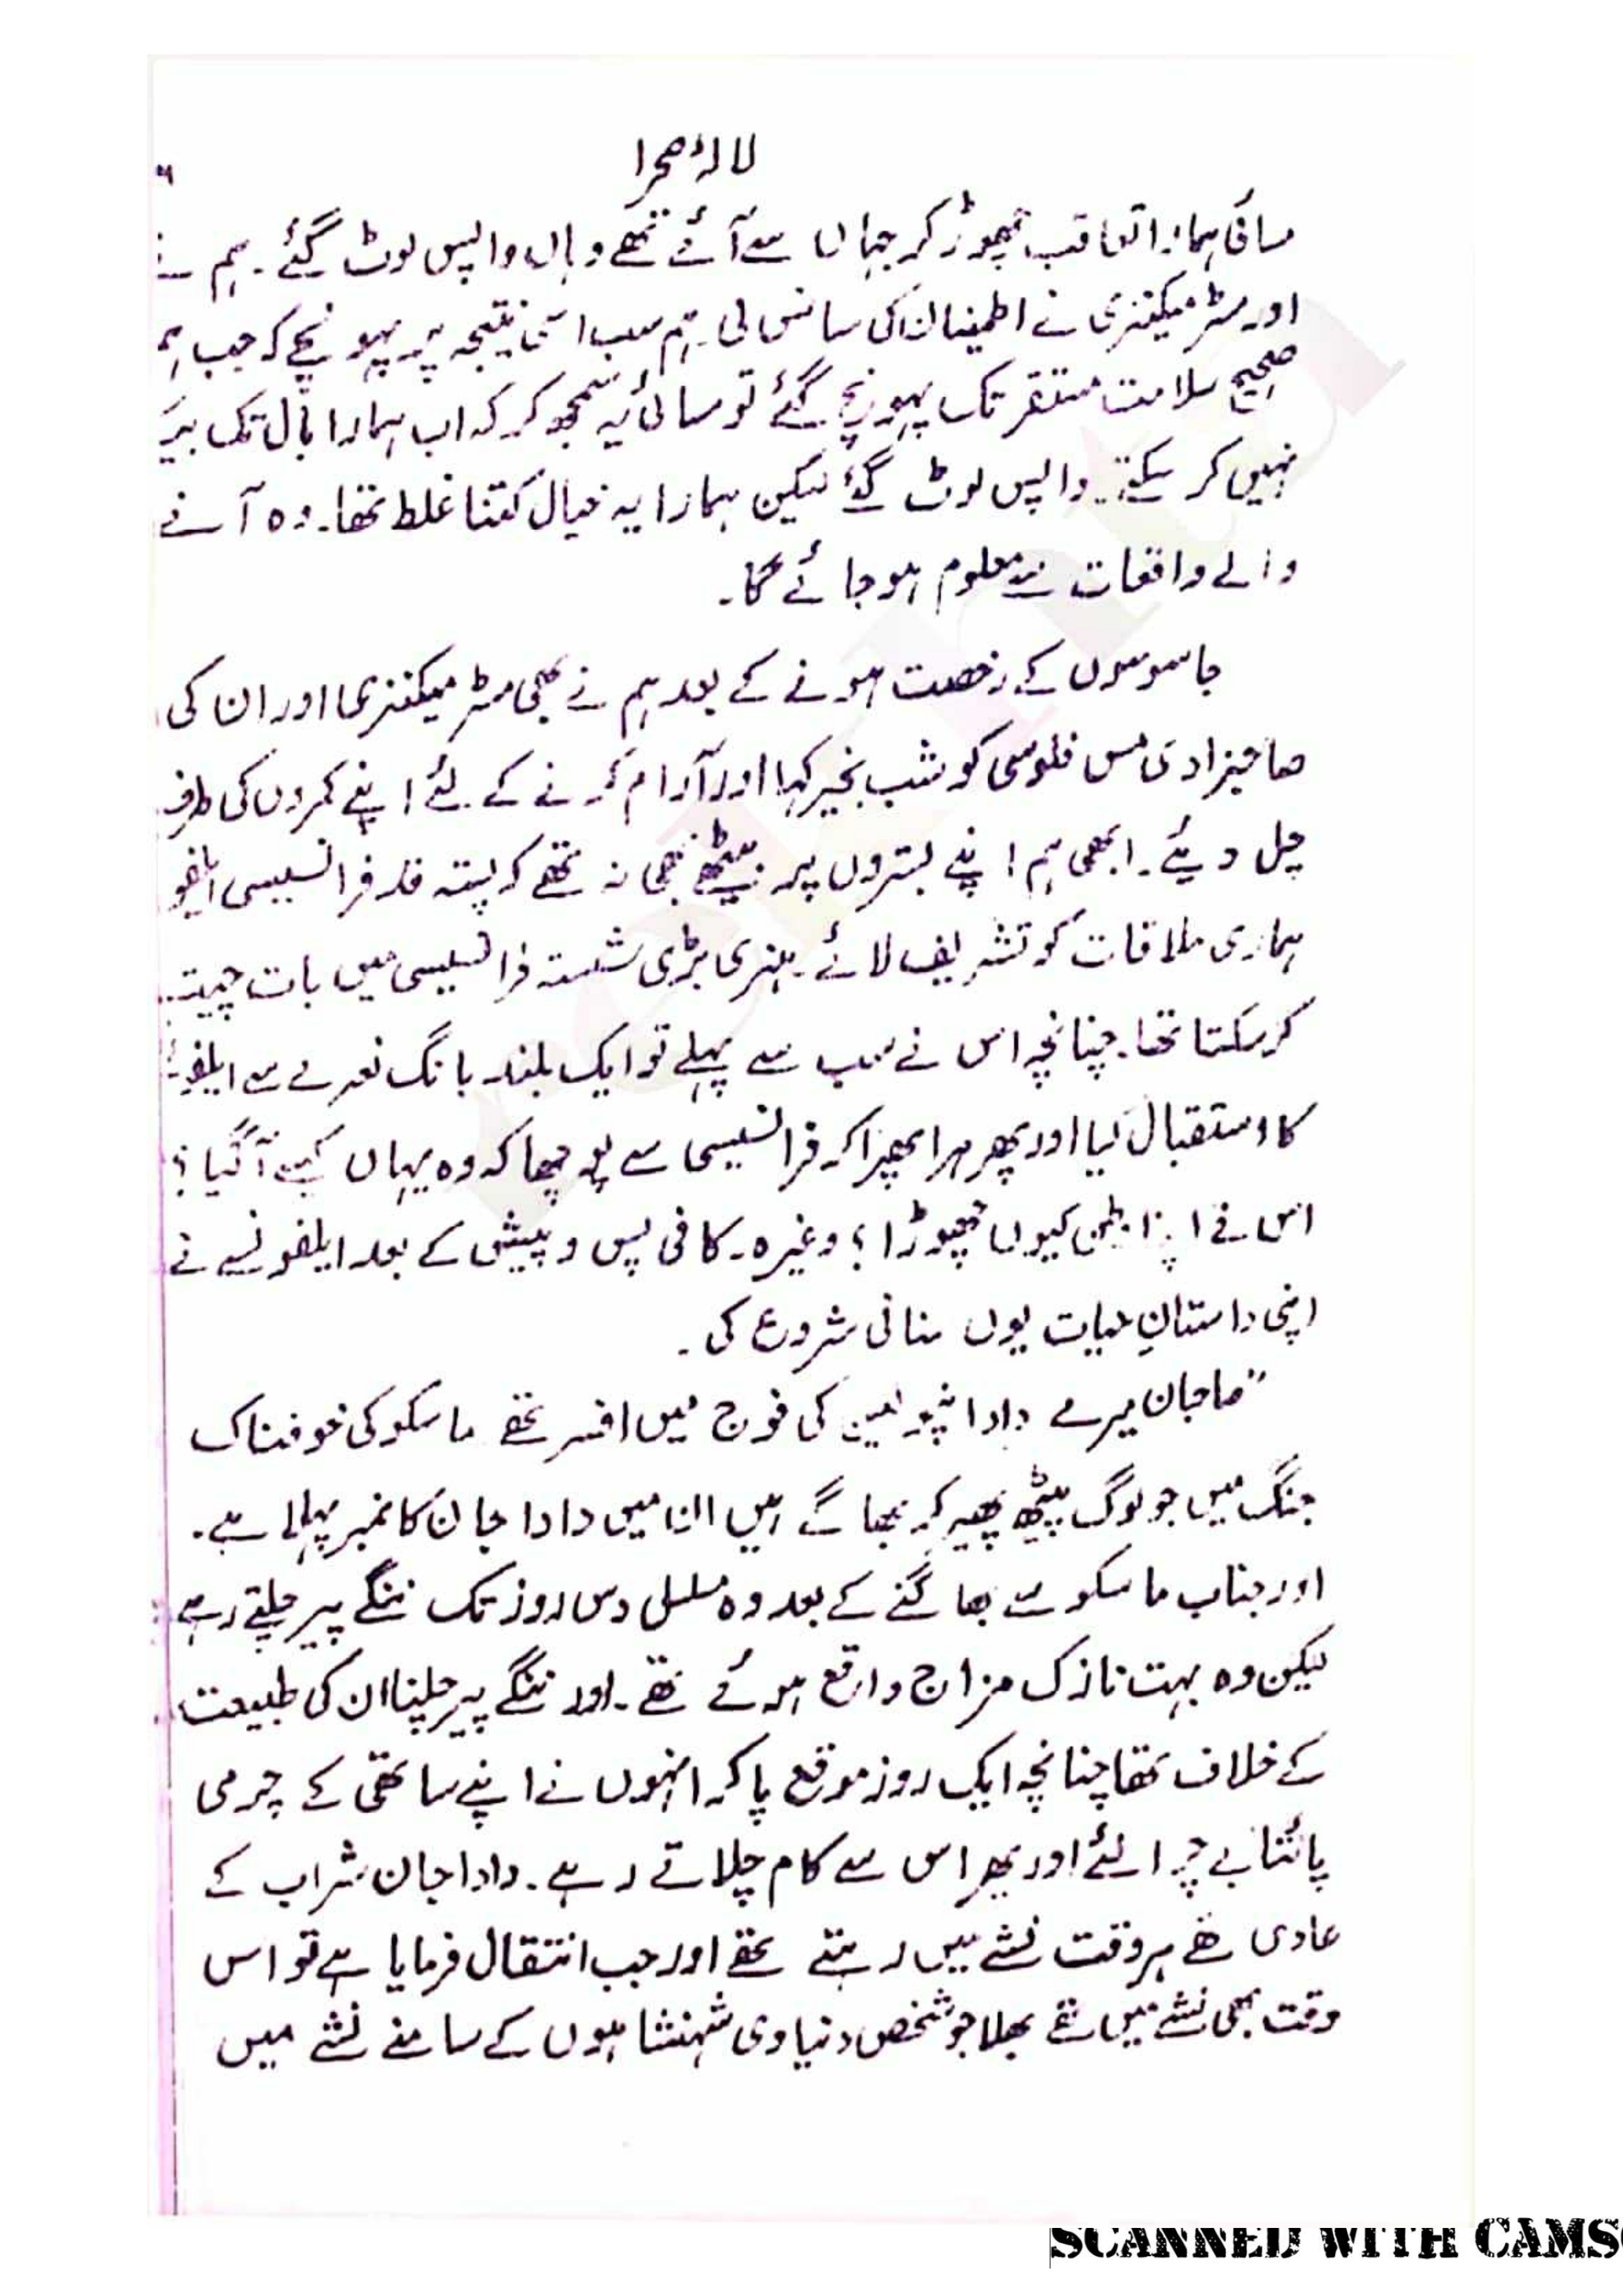 لالۂ صحرا
۶
سائی ہمارا تعاقب چھوڑ کر جہاں سے آئے تھے وہاں واپس لوٹ گئے۔ ہم نے
اور مسٹر میکنزی نے اطمینان کی سانس لی۔ ہم سب اسی نتیجہ پر پہونچے کہ جب ہم
صحیح سلامت مستقر تک پہونچ گئے تو سائی یہ سمجھ کر کہ اب ہمارا بال تک بیکا
نہیں کر سکتے۔ واپس لوٹ گئے لیکن ہمارا یہ خیال کتنا غلط تھا۔ وہ آنے
والے واقعات سے معلوم ہو جائے گا۔
جاسوسوں کے رخصت ہونے کے بعد ہم نے بھی مسٹر میکنزی اور ان کی
صاحبزادی مس فلوسی کو شب بخیر کہا اور آرام کرنے کے لئے اپنے کمروں کی طرف
چل دیئے۔ ابھی ہم اپنے بستروں پر بیٹھے بھی نہ تھے کہ پستہ قد فرانسیسی ایلفو
ہماری ملاقات کو تشریف لائے۔ ہنری بڑی شستہ فرانسیسی میں بات چیت
کر سکتا تھا۔ چنانچہ اس نے سب سے پہلے تو ایک بلند بانگ نعرے سے ایلفو
کا استقبال کیا اور پھر ہرا بھرا کر فرانسیسی سے پوچھا کہ وہ یہاں کیسے آگیا؟
اس نے اپنا وطن کیوں چھوڑا؟ وغیرہ۔ کافی پس و پیش کے بعد ایلفونسے نے
اپنی داستانِ حیات یوں سنانی شروع کی۔
”صاحبان میرے دادا نپولین کی فوج میں افسر تھے ماسکو کی خوفناک
جنگ میں جو لوگ پیٹھ پھیر کر بھاگے ہیں ان میں دادا جان کا نمبر پہلا ہے۔
اور جناب ماسکو سے بھاگنے کے بعد وہ مسلسل دس روز تک ننگے پیر چلتے رہے
لیکن وہ بہت نازک مزاج واقع ہوئے تھے۔ اور ننگے پیر چلنا ان کی طبیعت
کے خلاف تھا چنانچہ ایک روز موقع پا کر انہوں نے اپنے ساتھی کے چرمی
پائتابے چرا لئے اور پھر اس سے کام چلاتے رہے۔ دادا جان شراب کے
عادی تھے ہر وقت نشے میں رہتے تھے اور جب انتقال فرمایا ہے تو اس
وقت بھی نشے میں تھے بھلا جو شخص دنیاوی شہنشاہوں کے سامنے نشے میں
SCANNED WITH CAMS